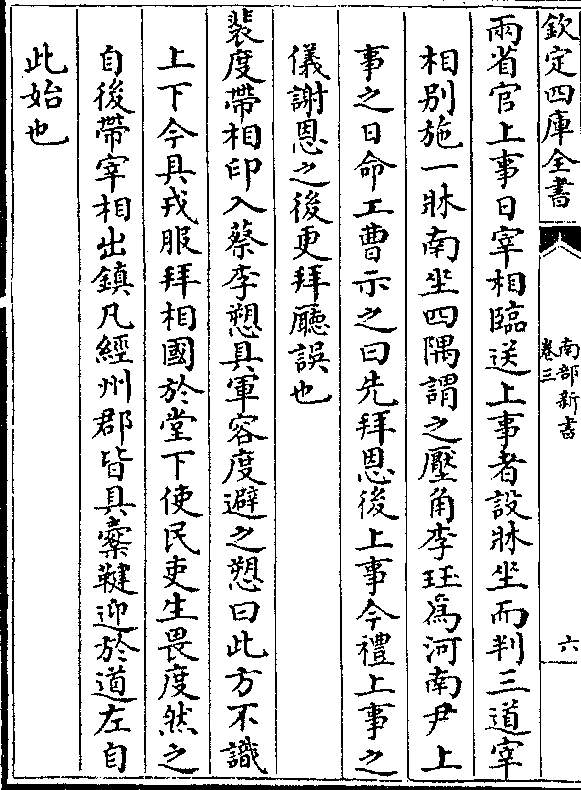 欽定四庫全書
南部新書
卷三
六
兩省官上事日宰相臨送上事者設牀坐而判三道宰
相别施一牀南坐四隅謂之壓角李珏爲河南尹上
事之日命工曹示之曰先拜恩後上事今禮上事之
儀謝恩之後更拜廳誤也
裴度帶相印入蔡李愬具軍容度避之愬曰此方不識
上下今具戎服拜相國於堂下使民吏生畏度然之
自後帶宰相出鎮凡經州郡皆具櫜鞬迎於道左自
此始也